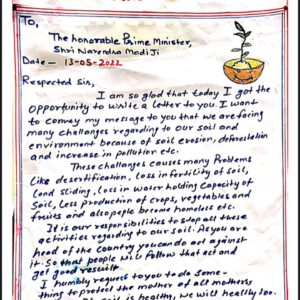 To,
The honorable Prime Minister,
Shri Narendra Modi Ji
Date - 13-05-2022
Respected Sir,
I am so glad that today I got the
opportunity to write a letter to you. I want
to convey my message to you that we are facing
many challenges regarding to our soil and
environment because of soil erosion, deforestation
and increase in pollution etc.
These challenges causes many Problems
Like desertification, loss in fertility of soil,
land sliding, loss in water holding Capacity of
Soil, Less production of crops, vegetables and
fruits and also people become homeless etc.
It is our responsibilities to stop all these
activities regarding to our soil. As you are
head of the country you can do act against
it. So that people will follow that act and
get good result
I humbly request to you to do Some-
thing to protect the mother of all mothers
soil is healthy, we will healthy too.